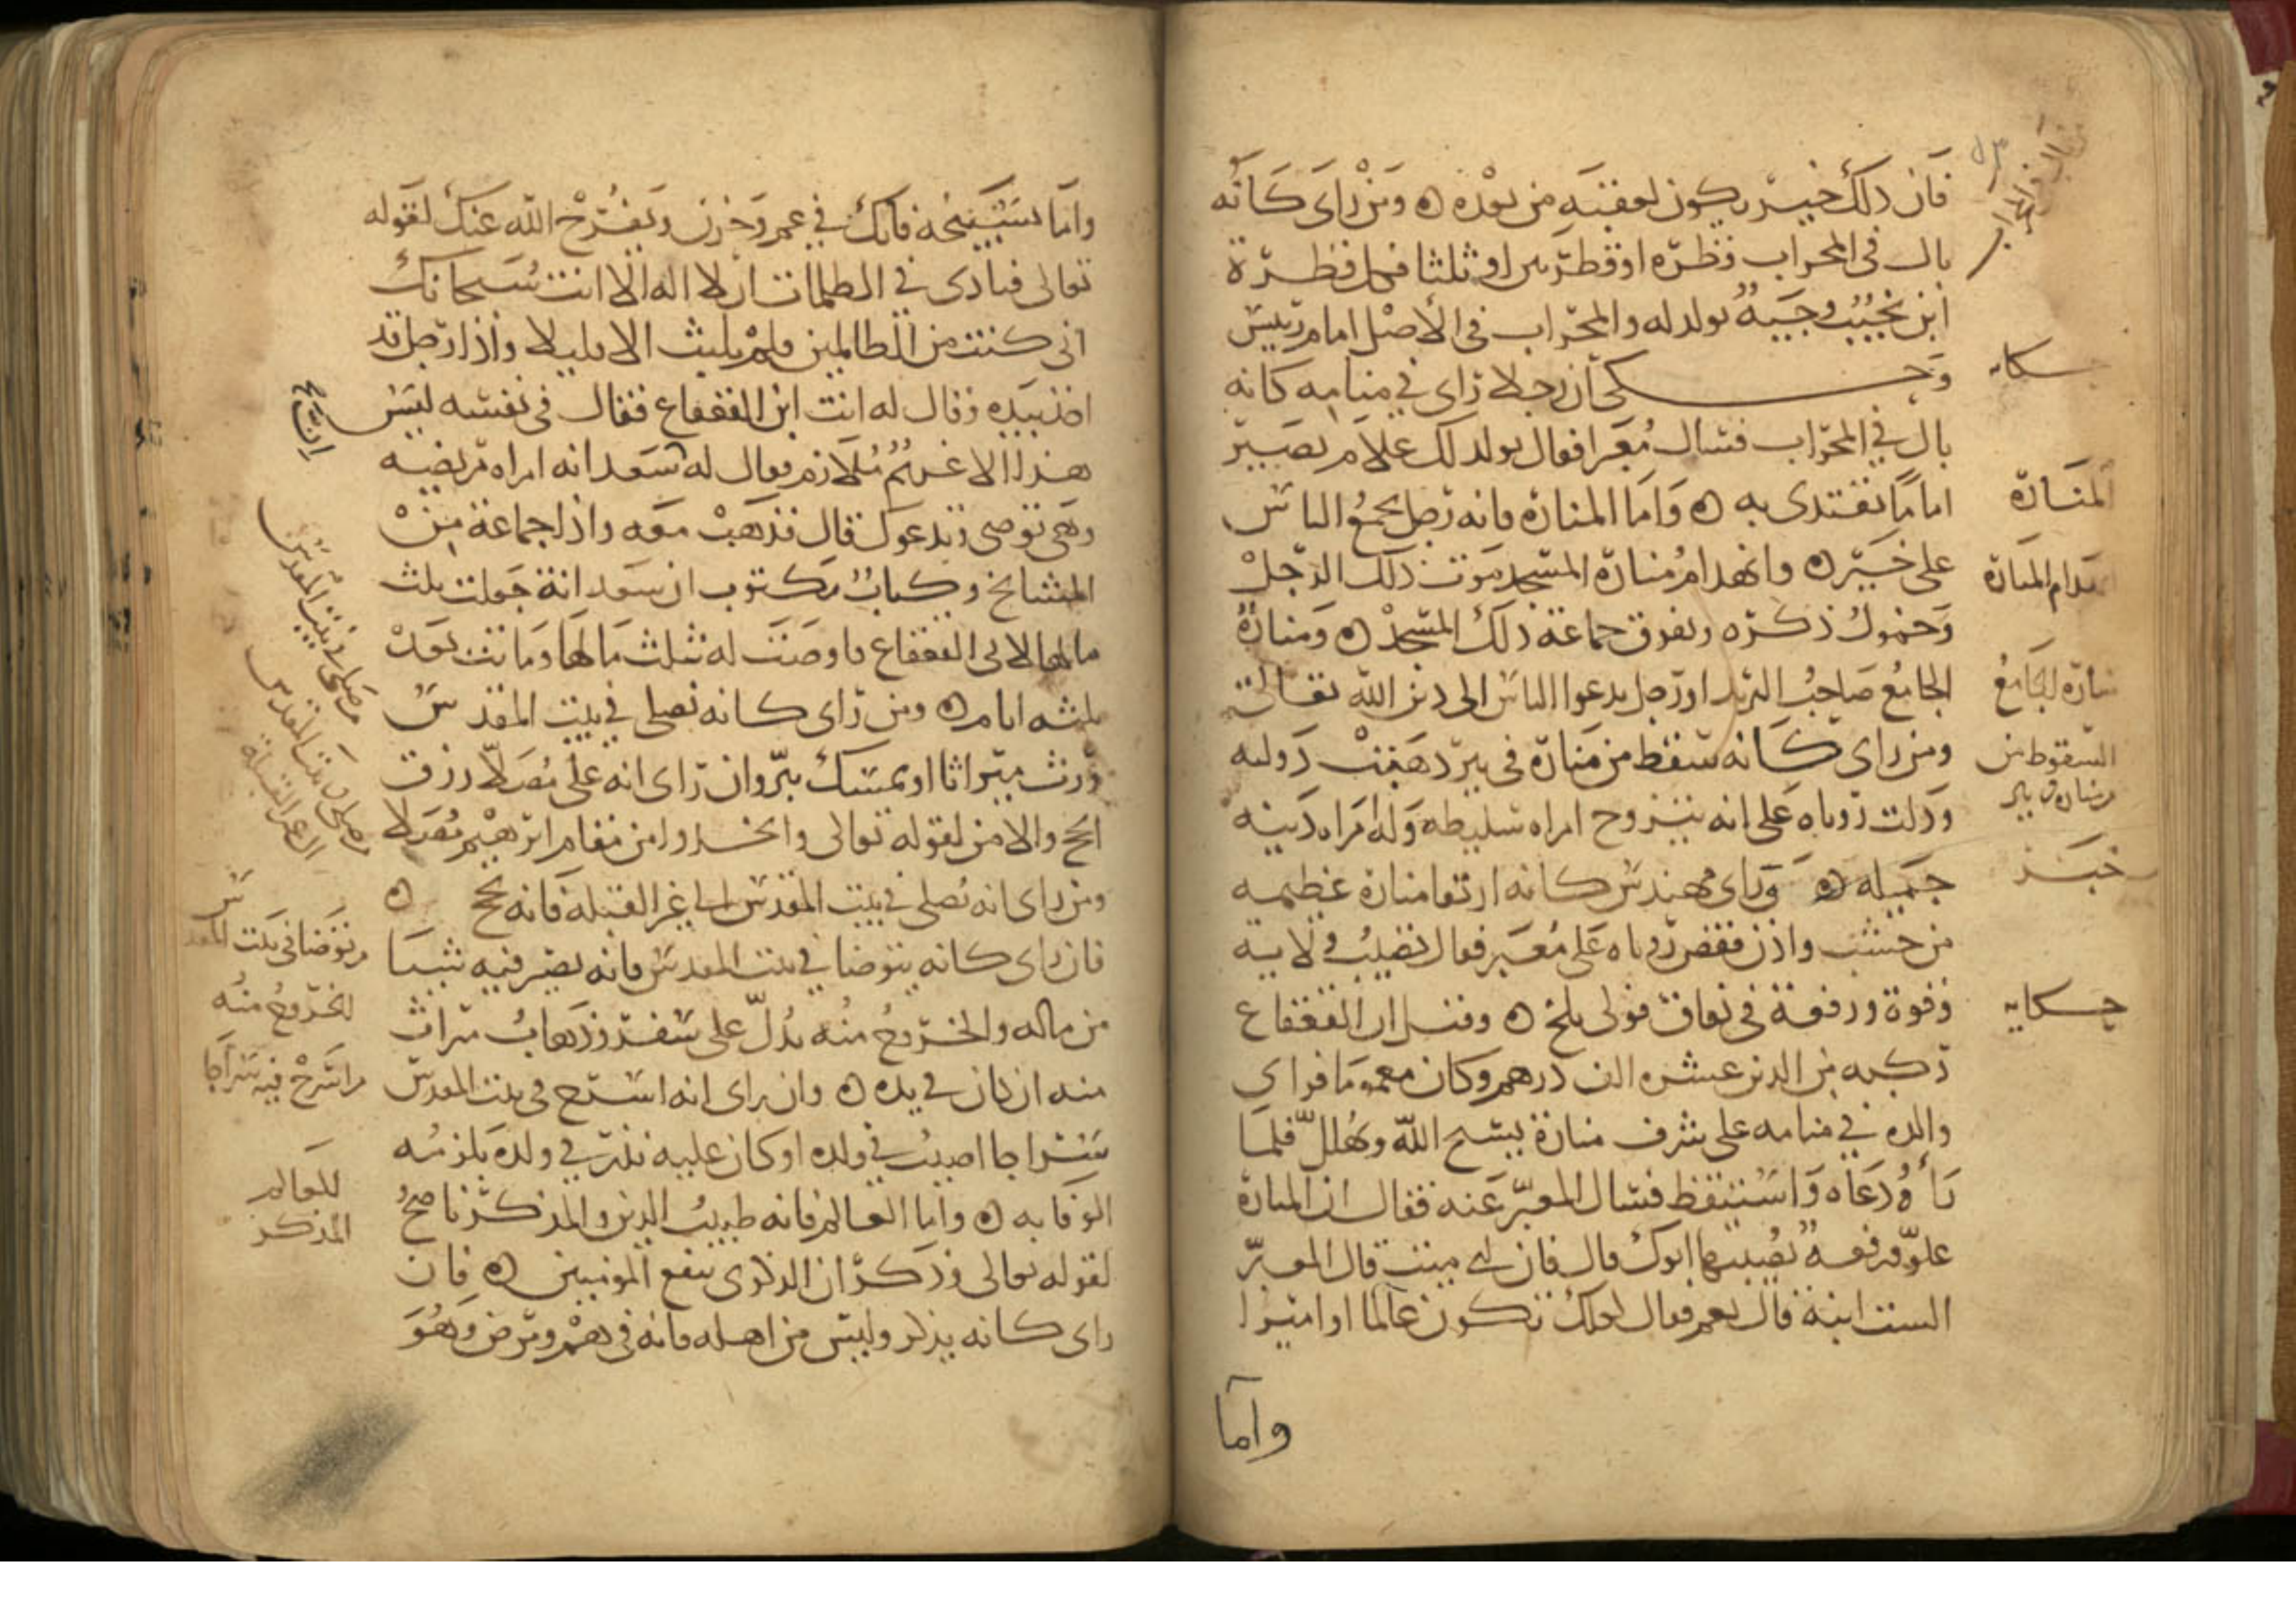 فان ذلك خير يكون لعقبه من بعده ومن راى كانه
بال فى المحراب قطره او قطرتين او ثلثا فكل قطرة
ابن نجيب وجيه يولد له والمحراب فى الاصل امام رئيس
وحكى ان رجلا راى في منامه كانه
بال في المحراب فسال معبرا فقال يولد لك غلام يصير
اماما يقتدى به واما المنارة فانه رجل يجمع الناس
على خير وانهدام منارة المسجد موت ذلك الرجل
وخمول ذكره وتفرق جماعة ذلك المسجد ومنارة
الجامع صاحب البريد او رجل يدعوا الناس الى دين الله تعالى
ومن راى كانه سقط من منارة فى بير ذهبت دولته
ودلت روياه على انه يتزوج امراه سليطه وله امراه دينه
جميله وراى مهندس كانه ارتقا منارة عظيمه
من خشب واذن فقص روياه على معبر فقال تصيب ولاية
وقوة ورفعة فى نفاق فولى بلخ وقيل ان ابن القعقاع
ركبه من الدين عشره الف درهم وكان مغموما فراى
والده في منامه على شرف منارة يسبح الله ويهلل فلما
راه دعاه واستيقظ فسال المعبر عنه فقال ان المنارة
علو ورفعه يصيبها ابوك قال فان ابى ميت قال المعبر
الست ابنه قال نعم فقال لعلك تكون عالما او اميرا
واما
حكايه
المنارة
انهدام المنارة
منارة الجامع
السقوط من
منارة فى بير
خبر
حكايه
واما تسبيحه فانك في غم وحزن ويفرح الله عنك لقوله
تعالى فنادى في الظلمات ان لا اله الا انت سبحانك
انى كنت من الظالمين فلم يلبث الا قليلا واذا رجل قد
اخذ بيده وقال له انت ابن القعقاع فقال فى نفسه ليس
هذا الا غريم ملازم فقال له سعدانه امراه مريضه
وهى توصى وتدعوك قال فذهبت معه واذا جماعة من
المشايخ وكتاب مكتوب ان سعدانة جعلت ثلث
مالها لابن القعقاع فاوصت له بثلث مالها وماتت بعد
ثلثه ايام ومن راى كانه يصلى في بيت المقدس
ورث ميراثا او يمسك ببر وان راى انه على مصلا رزق
الحج والامن لقوله تعالى واتخذوا من مقام ابرهيم مصلا
ومن راى انه يصلى في بيت المقدس الى غير القبله فانه يحج
فان راى كانه يتوضا في بيت المقدس فانه يصير فيه شيا
من ماله والخروج منه يدل على سفر وذهاب ميراث
منه ان كان في يده وان راى انه اسرج فى بيت المقدس
سراجا اصيب في ولده او كان عليه نذر في ولده يلزمه
الوفا به واما العالم فانه طبيب الدين والمذكر ناصح
لقوله تعالى وذكر ان الذكرى تنفع المومنين فان
راى كانه يذكر وليس من اهله فانه فى هم ومرض وهو
من صلى في بيت المقدس
من توضا فى بيت المقدس
الخروج منه
من اسرج فيه سراجا
العالم
المذكر